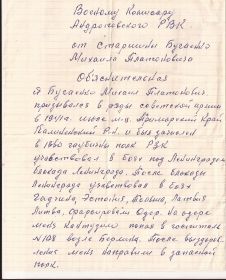 Военому Комисару
Андроповского РВК
от Старшины Бусаенко
Михаила Платоновича
Объяснительная
Я Бусаенко Михаил Платонович
призывался в ряды советской армии
в 1941 г. июле м-ц. Приморский Край
Калининский Р.Н. и был зачислен
в полк РВК
участвовал в боях под Ленинградом
блокада Ленинграда. После блокады
Ленинграда учавствовал в боях
Гатчина, Эстония, Польша, Латвия
Литва, форсировали Одер. На одере
меня контузило попал в госпиталь
№108 возле Берлина. После выздоров
ления меня направили в запасной
полк.